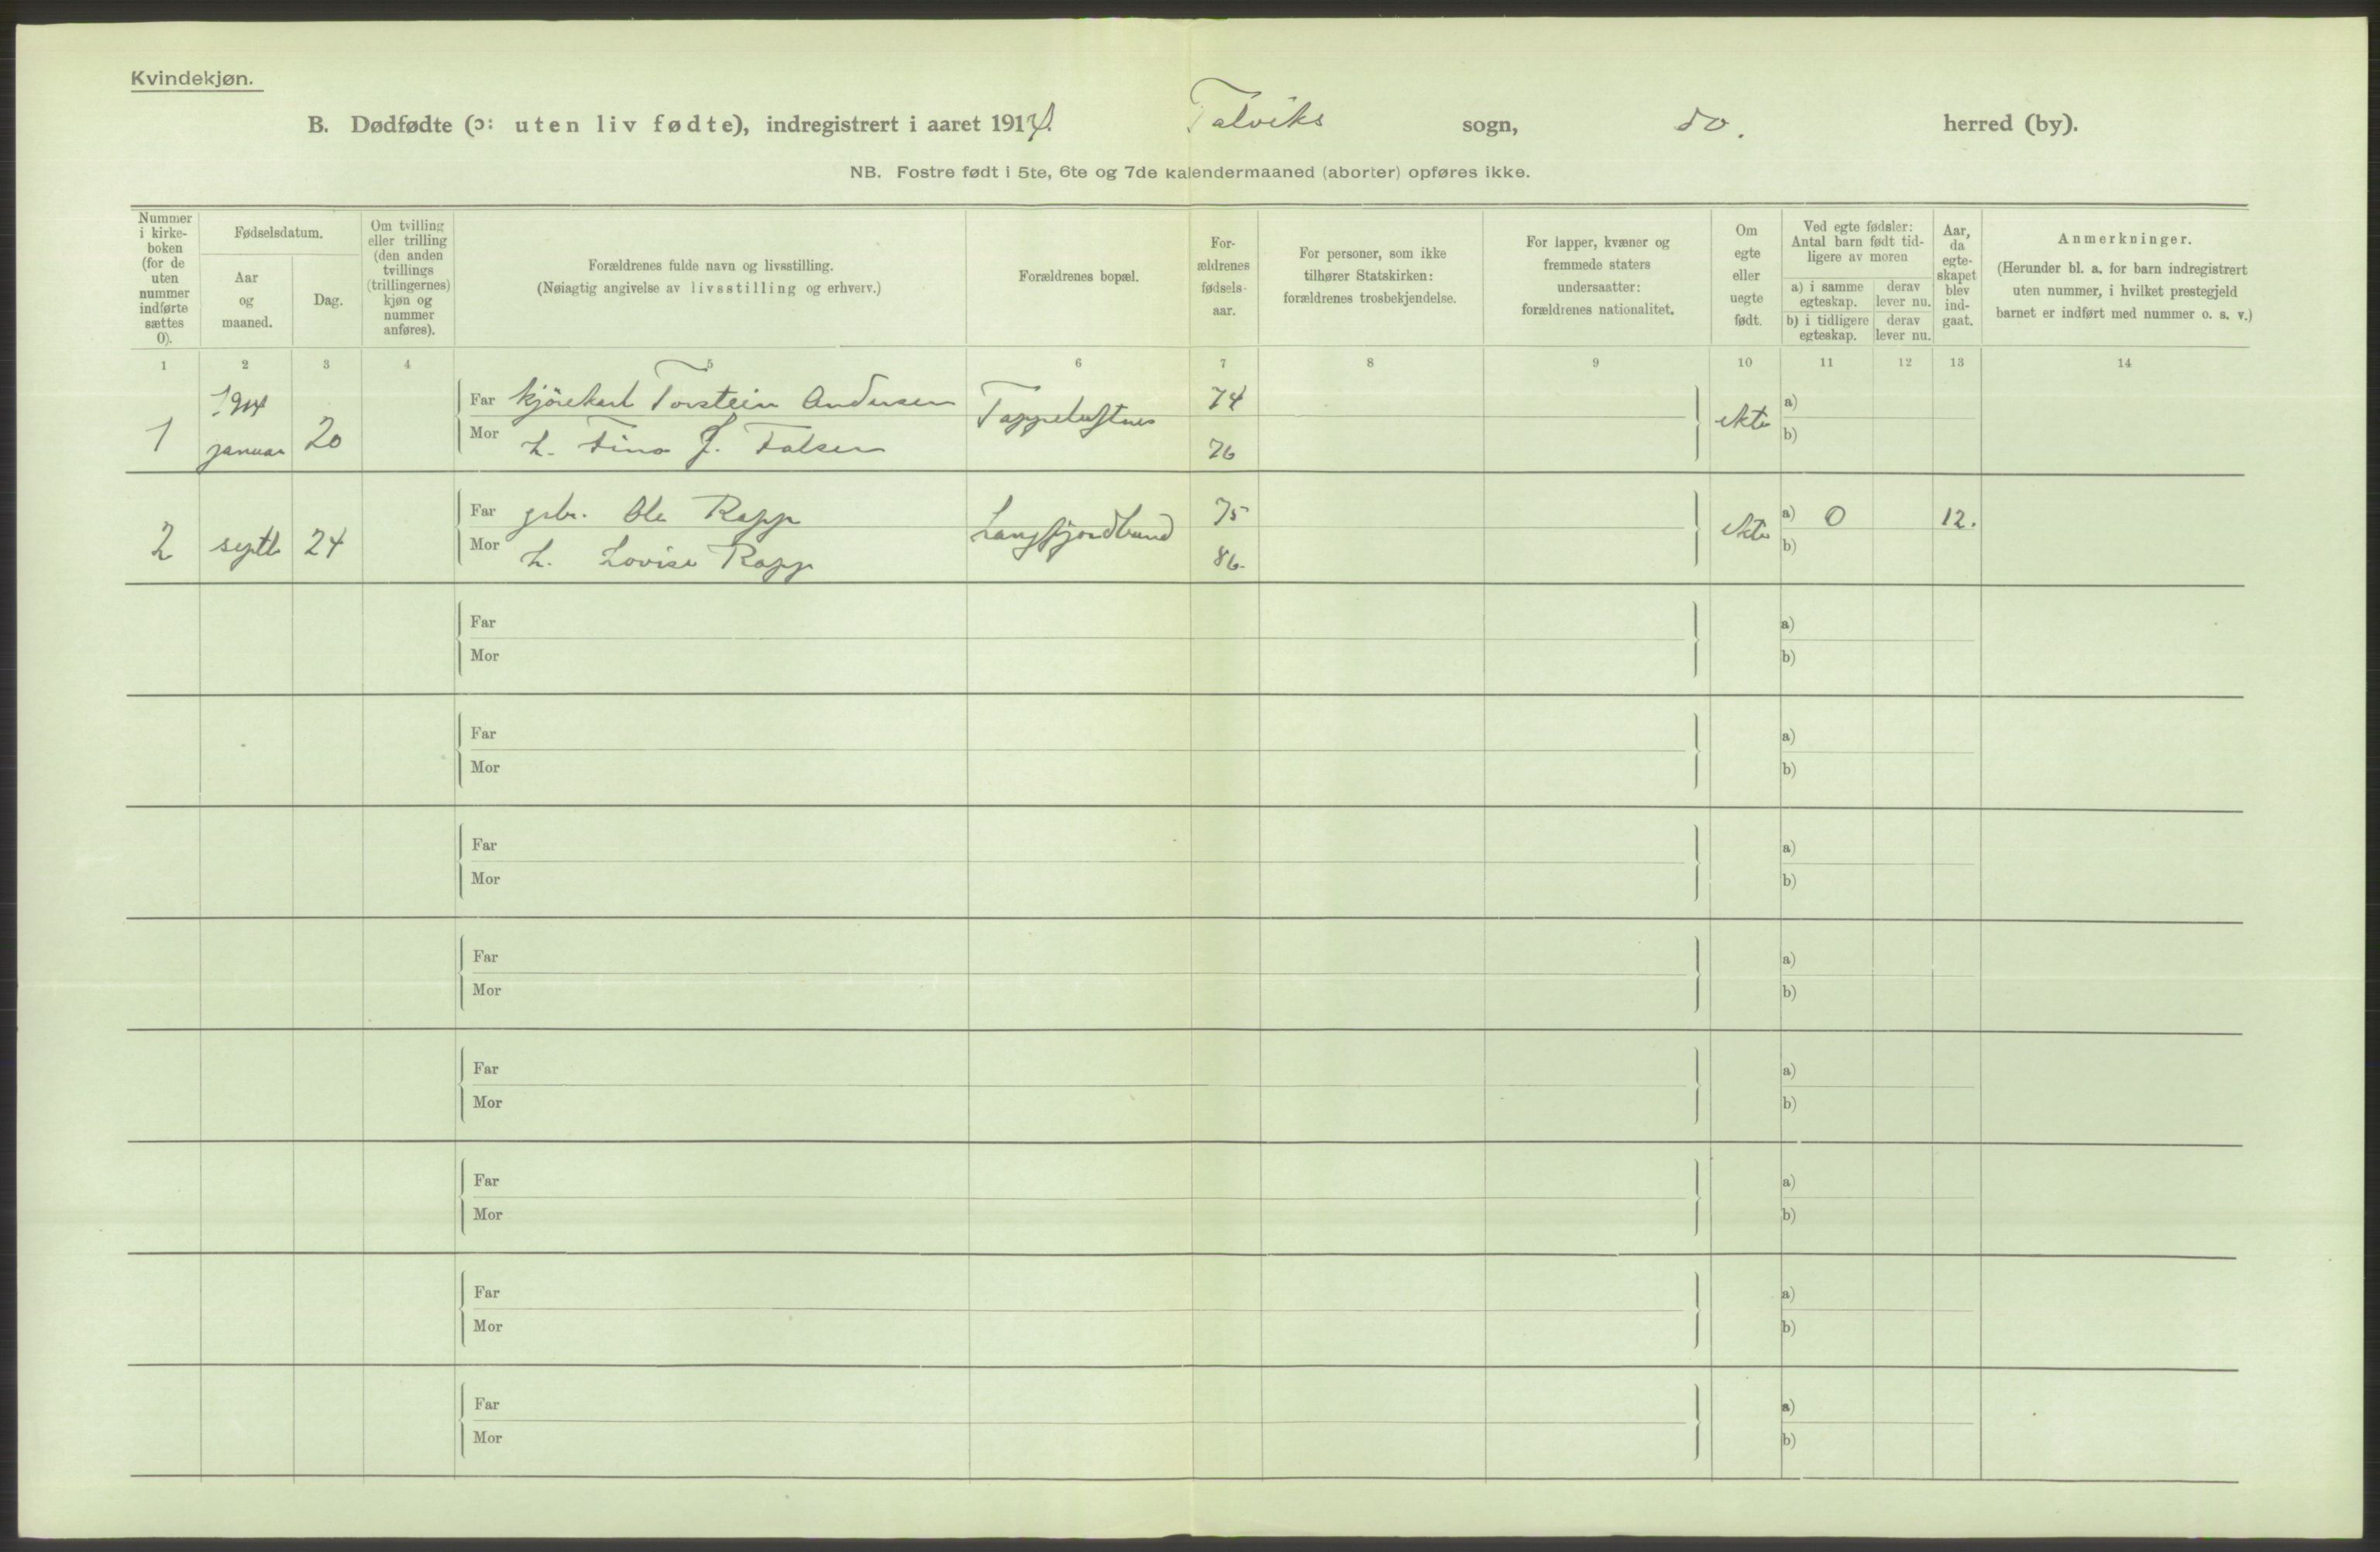 Kvindekjøn.
B. Dødfødte (ɔ: uten liv fødte), indregistrert i aaret 1914. Talviks sogn, do. herred (by).
NB. Fostre født i 5te, 6te og 7de kalendermaaned (aborter) opføres ikke.
Nummer i kirke-boken (for de uten nummer indførte sættes 0).
Fødselsdatum.
Aar og maaned.
Dag.
Om tvilling eller trilling (den anden tvillings (trillingernes) kjøn og nummer anføres).
Forældrenes fulde navn og livsstilling.
(Nøiagtig angivelse av livsstilling og erhverv.)
Forældrenes bopæl.
For-ældrenes fødsels-aar.
For personer, som ikke tilhører Statskirken: forældrenes trosbekjendelse.
For lapper, kvæner og fremmede staters undersaatter: forældrenes nationalitet.
Om egte eller uegte født.
Ved egte fødsler: Antal barn født tid-ligere av moren
a) i samme egteskap.
derav lever nu.
b) i tidligere egteskap.
derav lever nu.
Aar, da egte-skapet blev ind-gaat.
Anmerkninger.
(Herunder bl. a. for barn indregistrert uten nummer, i hvilket prestegjeld barnet er indført med nummer o. s. v.)
1 2 3 4 5 6 7 8 9 10 11 12 13 14
1914
Far kjørekarl Torstein Andersen Tappeluftnes 74 a)
1 januar 20 ekte
Mor h. Fina J. Falsen 76 b)
Far gbr. Ole Rapp Langfjordbund 75 a) 0 12.
2 septb 24 ekte
Mor h. Lovise Rapp 86. b)
Far a)
Mor b)
Far a)
Mor b)
Far a)
Mor b)
Far a)
Mor b)
Far a)
Mor b)
Far a)
Mor b)
Far a)
Mor b)
Far a)
Mor b)